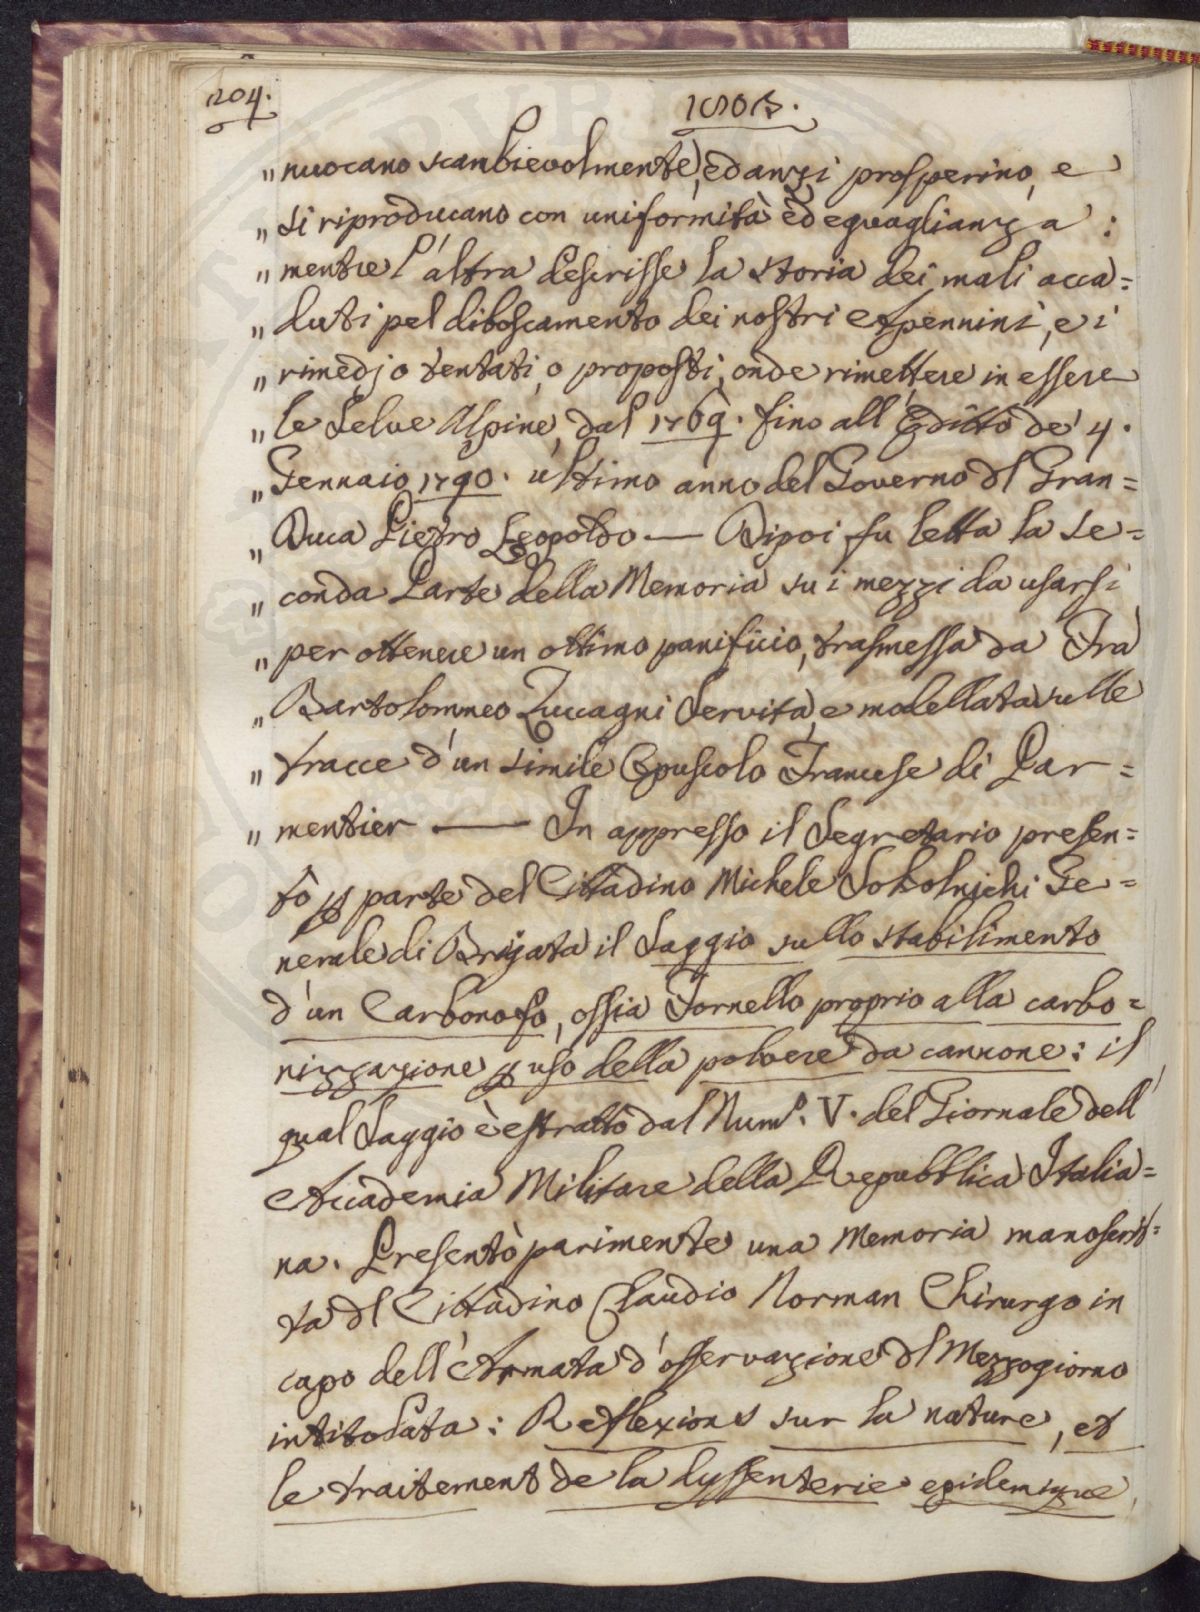 204.
1803.
„ nuocano scambievolmente, ed anzi prosperino, e
„ si riproducano con uniformità ed eguaglianza :
„ mentre l'altra descrisse la storia dei mali acca=
„ duti pel diboscamento dei nostri Apennini, e i
„ rimedj o tentati, o proposti, onde rimettere in essere
„ le Selve Alpine, dal 1769. fino all'Editto de' 4.
„ Gennaio 1790. ultimo anno del Governo dl Gran=
„ Duca Pietro Leopoldo — Dipoi fu letta la Se=
„ conda Parte della Memoria su i mezzi da usarsi
„ per ottenere un ottimo panificio, trasmessa da Fra
„ Bartolommeo Zuccagni Servita, e modellata sulle
„ tracce d'un simile Opuscolo Francese di Par=
„ mentier — In appresso il Segretario presen=
tò p parte del Cittadino Michele Sokolnichi Ge=
nerale di Brigata il Saggio sullo stabilimento
d'un Carbonofo, ossia Fornello proprio alla carbo=
nizzazione p uso della polvere da cannone: il
qual Saggio è estratto dal Num.o V. del Giornale dell'
Accademia Militare della Repubblica Italia=
na. Presentò parimente una Memoria manoscrit=
ta dl Cittadino Claudio Norman Chirurgo in
capo dell'Armata d'osservazione dl Mezzogiorno
intitolata: Reflexions sur la nature, et
le traitement de la dyssenterie epidemique,